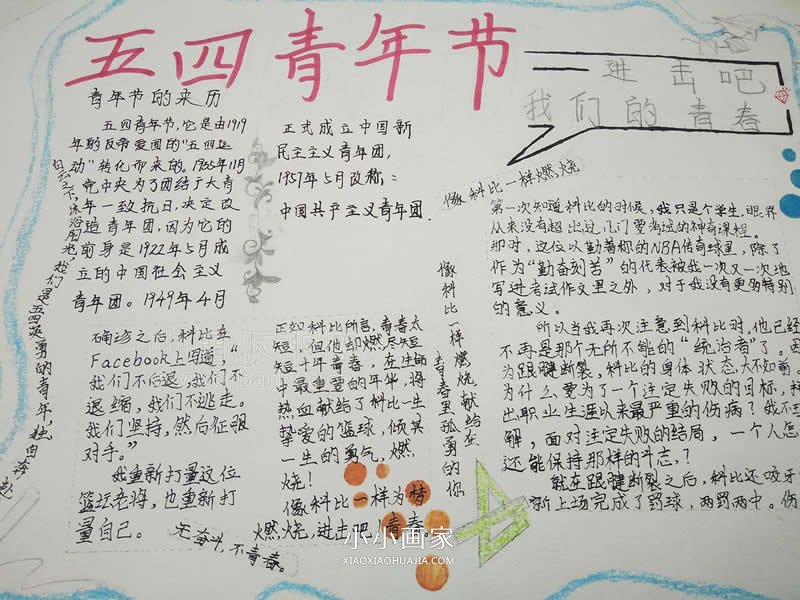 五四青年节
进击吧
我们的青春
青年节的来历
五四青年节,它是由1919
年的反帝爱国的"五四运
动"转化而来的。1935年11月
党中央为了团结广大青
年一致抗日,决定改
造青年团,因为它的
前身是1922年5月成
立的中国社会主义
青年团。1949年4月
正式成立中国新
民主主义青年团,
1957年5月改称:
中国共产主义青年团.
我们是五四英勇的青年,独自奔赴
像科比一样燃烧
第一次知道科比的时候,我只是个学生,眼界
从来没有超出过
那时,这位以勤著称的NBA传奇球星,除了
作为"勤奋刻苦"的代表被我一次又一次地
写进考试作文里之外,对于我没有更多特别
的意义。
所以当我再次注意到科比时,他已经
不再是那个无所不能的"统治者"了。因
为跟腱断裂,科比的身体状态大不如前。
为什么要为了一个注定失败的目标,
出职业生涯以来最严重的伤病?我不理
解,面对注定失败的结局,一个人怎
还能保持那样的斗志?
就在跟腱断裂之后,科比还咬牙
新上场完成了罚球,两罚两中。伤
确诊之后,科比在
Facebook上写道,"
我们不后退,我们不
退缩,我们不逃走。
我们坚持,然后征服
对手。"
我重新打量这位
篮坛老将,也重新打
量自己。
无奋斗,不青春。
正如科比所言,青春太
短,但他却燃尽短
短十年青春,在生命
中最重要的年华,将
热血献给了科比一生
挚爱的篮球,倾其
一生的勇气,燃
烧!
像科比一样为梦
燃烧,进击吧!青春。
像科比一样燃烧献给在
青春里孤勇的你
小小画家
XIAOXIAOHUAJIA.COM